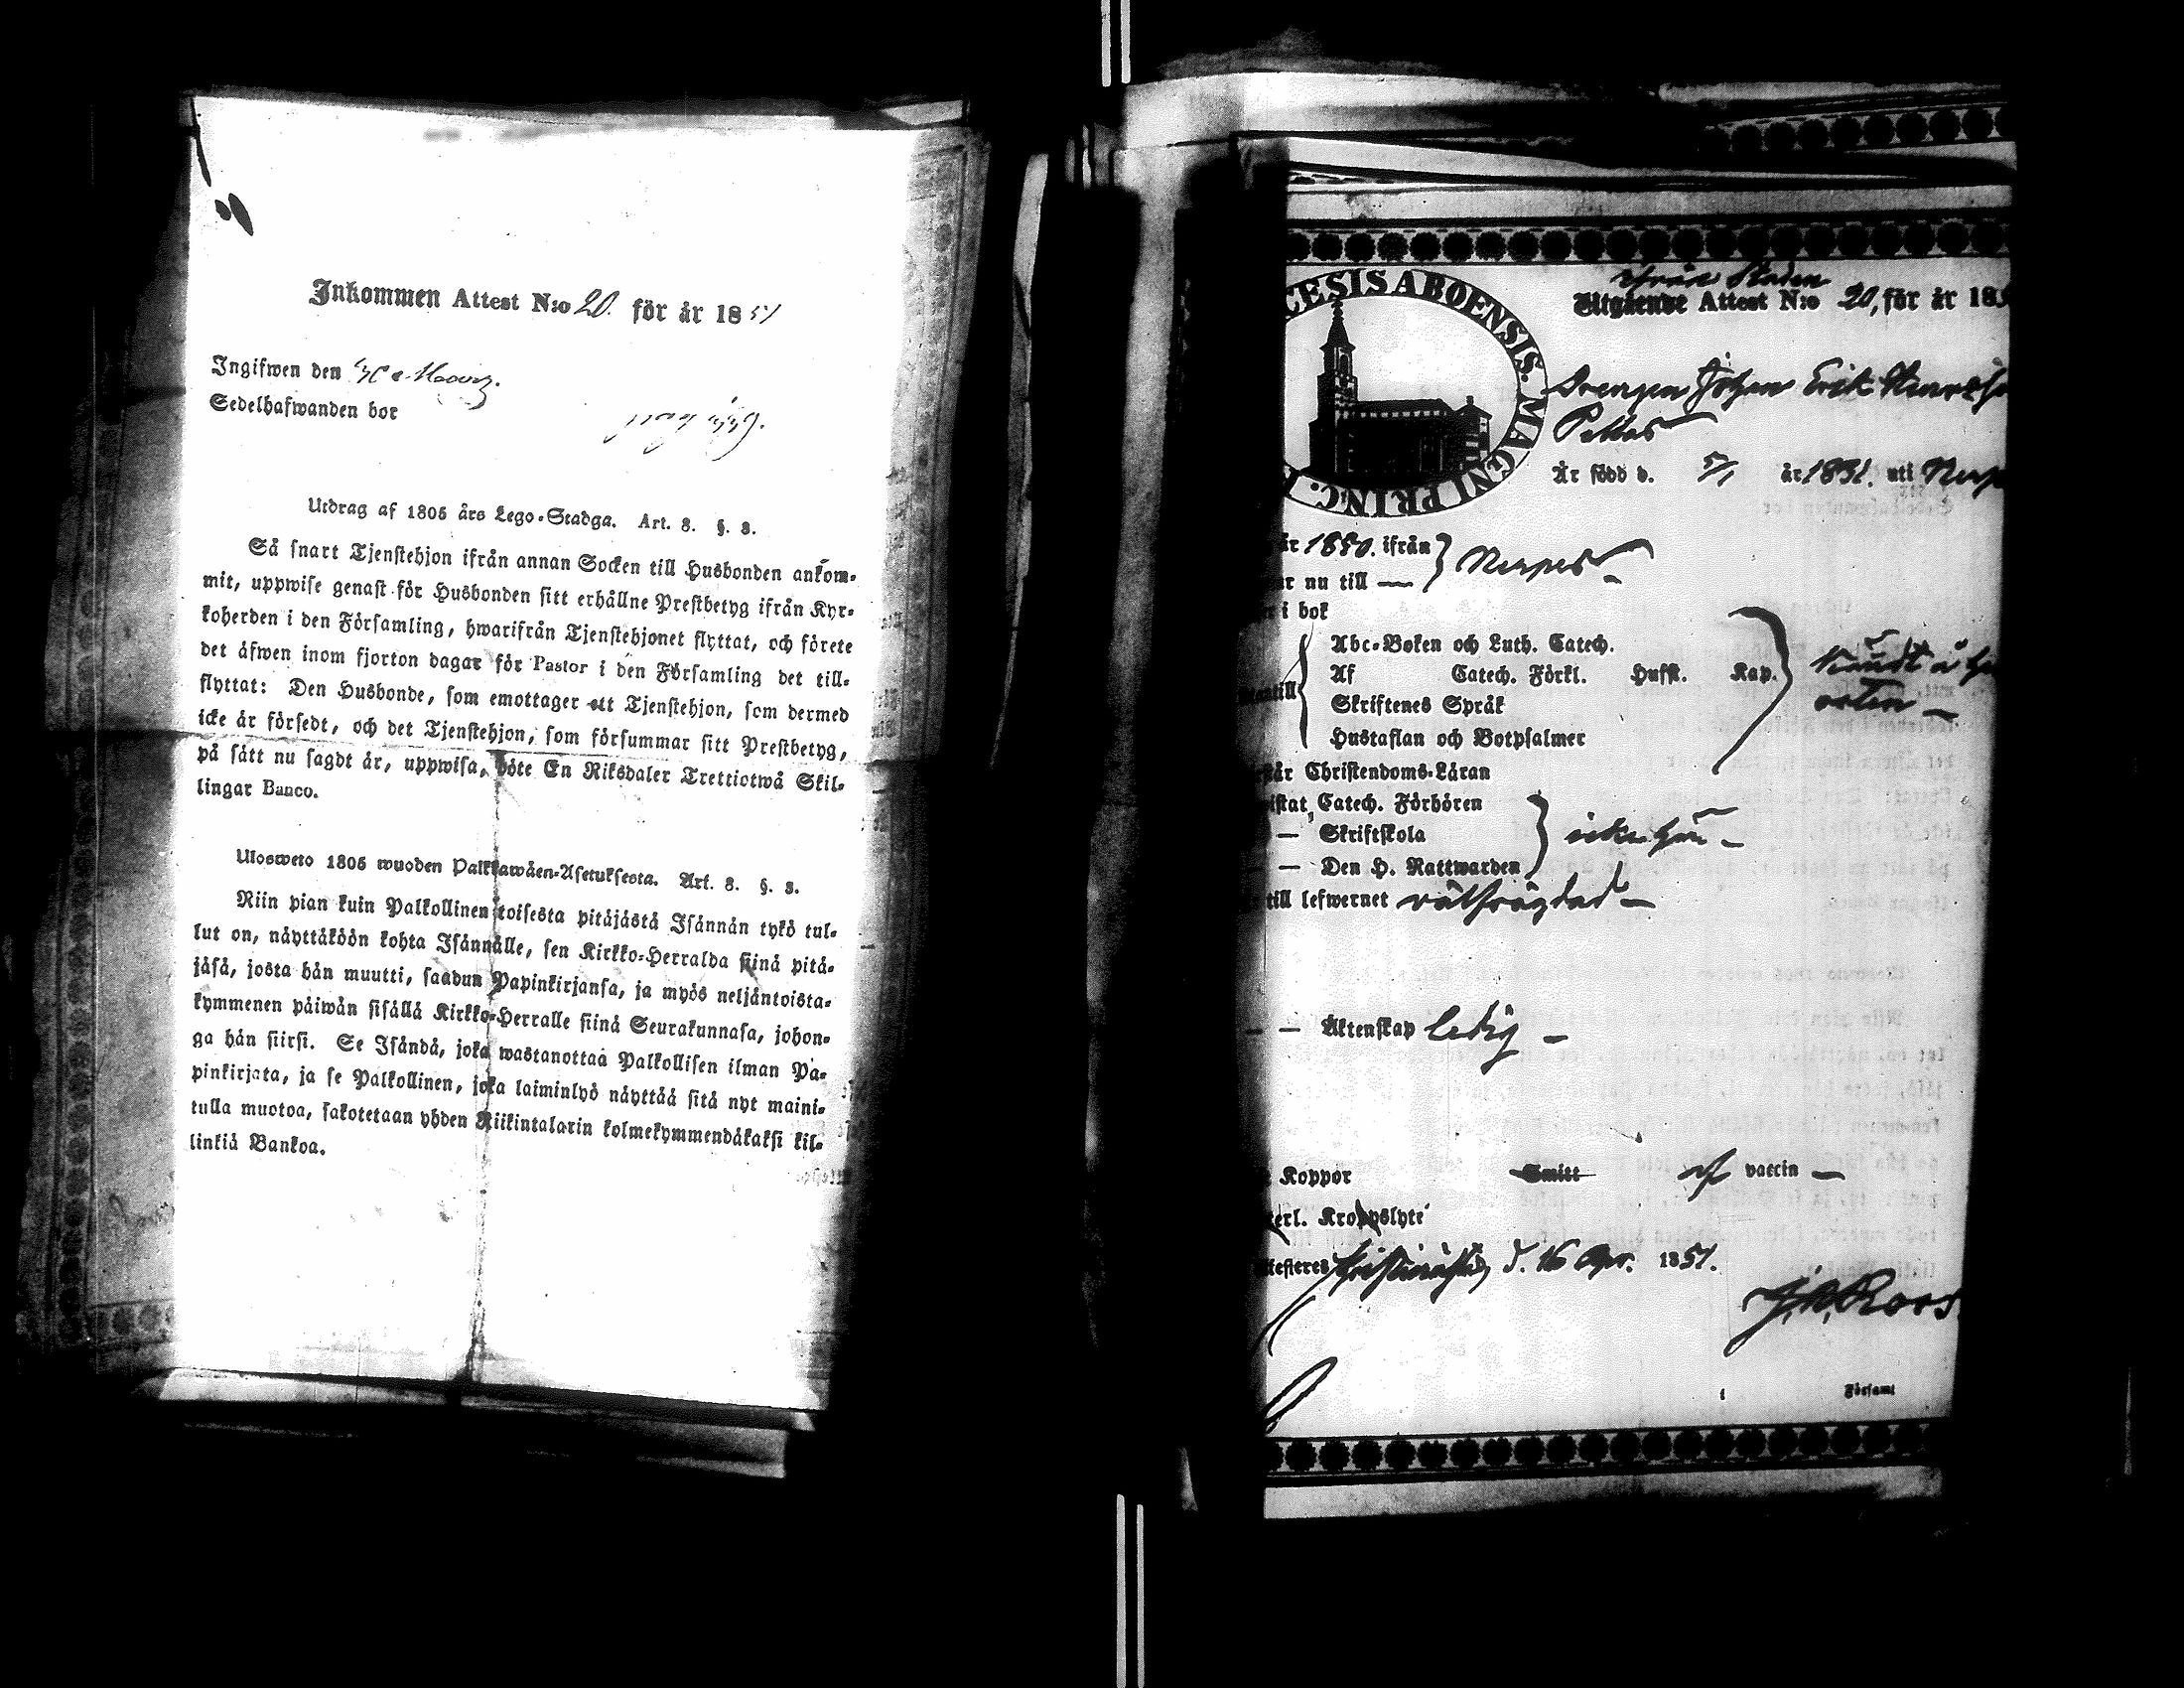 Inkommen Attest N:o 20. för år 1851
Ingifwen den
Sedelhafwanden bor
pag
Utdrag af 1805 års Lego-Stadga. Art. 8. §. 3.
Så snart Tjenstehjon ifrån annan Socken till Husbonden ankom-
mit, uppwise genast för Husbonden sitt erhållne Prestbetyg ifrån Kyr-
koherden i den Församling, hwarifrån Tjenstehjonet flyttat, och förete
det äfwen inom fjorton dagar för Pastor i den Församling det till-
flyttat: Den Husbonde, som emottager ett Tjenstehjon, som dermed
icke är försedt, och det Tjenstehjon, som försummar sitt Prestbetyg,
på sätt nu sagdt är, uppwisa, böte En Riksdaler Trettiotwå Skil-
lingar Banco.
Ulosweto 1805 wuoden Palkkawäen-Asetuksesta. Art. 8. §. 3.
Niin pian kuin Palkollinen toisesta pitäjästä Isännän tykö tul-
lut on, näyttäköön kohta Isännälle, sen Kirkko-Herralda siinä pitä-
jäsä, josta hän muutti, saadun Papinkirjansa, ja myös neljäntoista-
kymmenen päiwän sisällä Kirkko-Herralle siinä Seurakunnasa, johon-
ga hän siirsi. Se Isändä, joka wastanottaa Palkollisen ilman Pa-
pinkirjata, ja se Palkollinen, joka laiminlyö näyttää sitä nyt maini-
tulla muotoa, sakotetaan yhden Riikintalarin kolmekymmendäkaksi kil-
linkiä Bankoa.
CESIS ABOENSIS. MAGNI PRINC.
ifrån Staden
Utgående Attest N:o 20, för år 185
Drengen Johan Erik
Är född d. 5/1 år 1831. uti
år 1850. ifrån } Nerpes
nu till —
i bok
Abc-Boken och Luth. Catech.
Af Catech. Förkl. Hufst. Kap.
Skriftenes Språk
orten —
Hustaflan och Botpsalmer
Christendoms-Läran
Catech. Förhören
— Skriftskola } icke här —
— Den H. Nattwarden
till lefwernet välfrägdad —
— Äktenskap ledig —
Koppor Smitt af vaccin —
Kroppslyte
Kristinestad d. 16 Apr. 1851.
J. A. Roos
i Församl